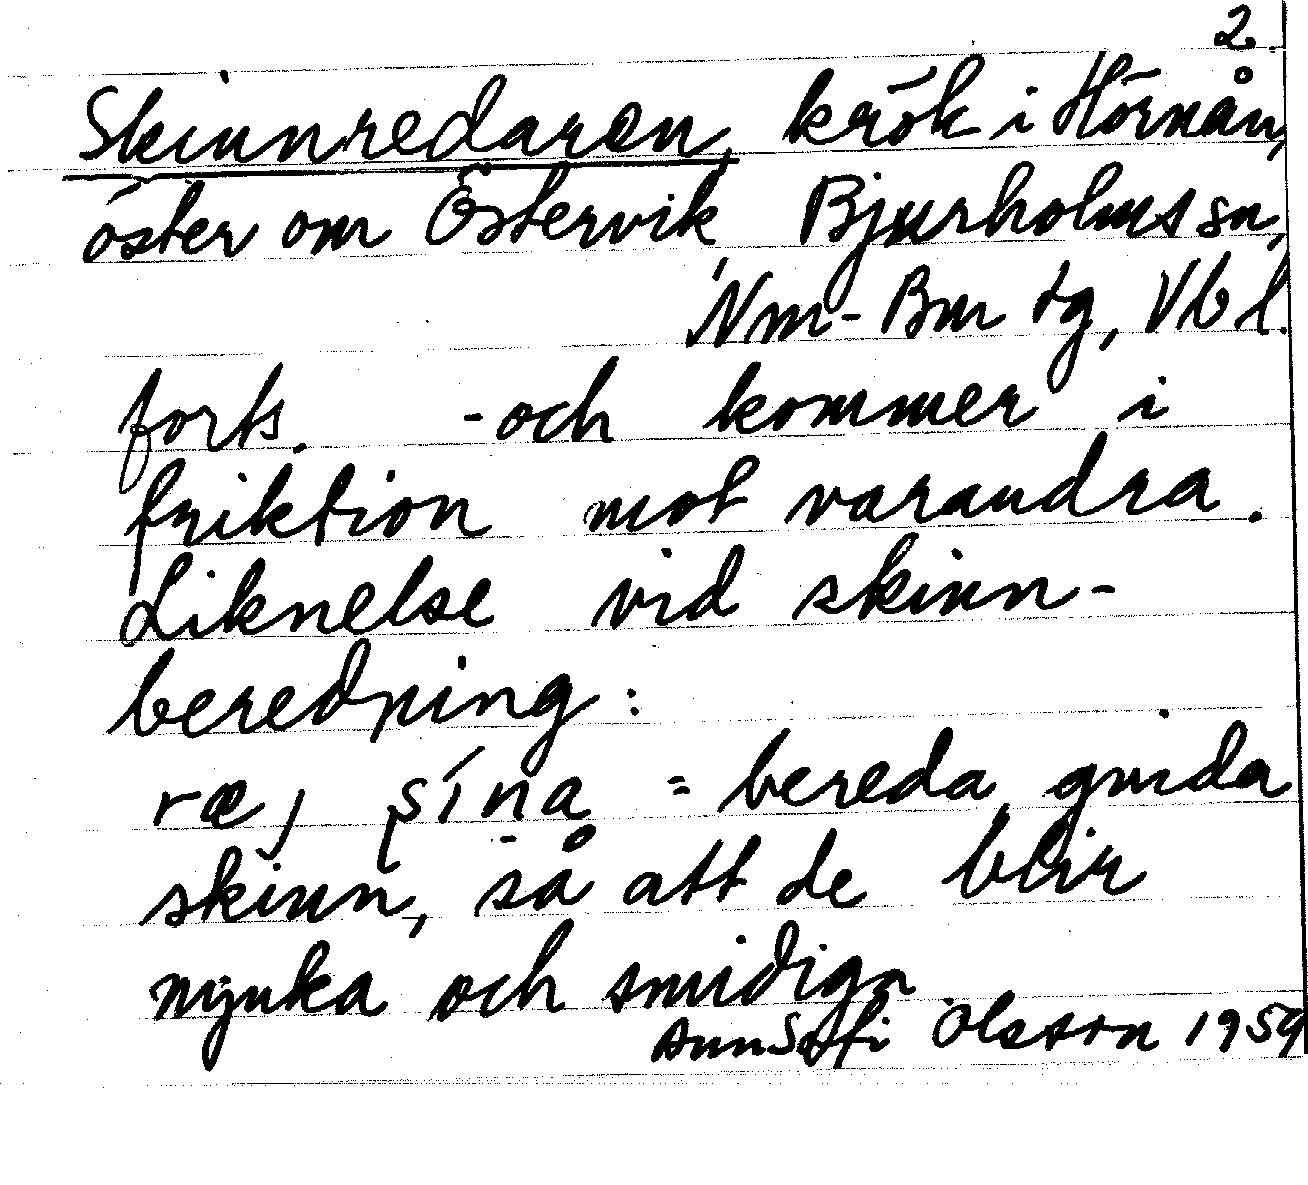 2.
Skinnredaren, krök i Hörnån,
öster om Östervik Bjurholms sn,
Nm-Bm tg, Vb l.
forts. -och kommer i
friktion mot varandra.
Liknelse vid skinn-
beredning:
ræ, sína = bereda, gnida
skinn, så att de blir
mjuka och smidiga
Ann Sofi Olsson 1959